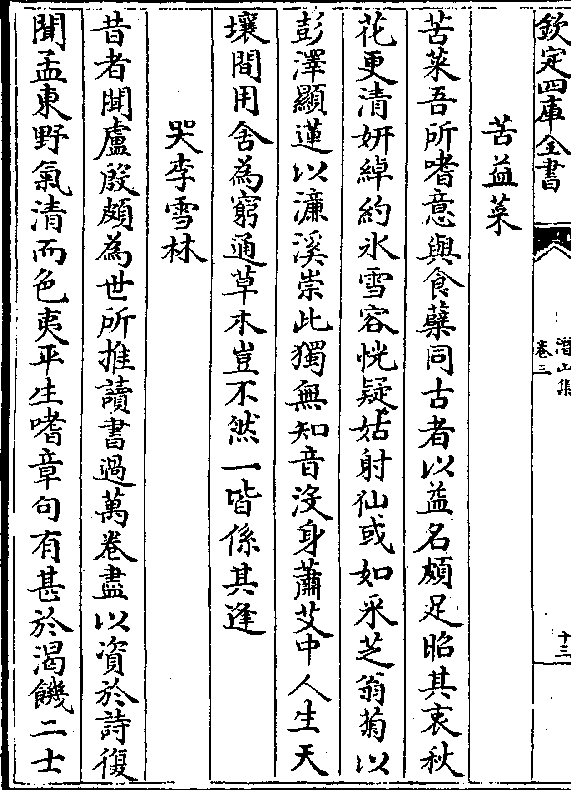 欽定四庫全書
潛山集
卷三
十三
苦益菜
苦菜吾所嗜意與食蘗同古者以益名頗足昭其衷秋
花更清妍綽約氷雪容恍疑姑射仙或如采芝翁菊以
彭澤顯蓮以濂溪崇此獨無知音沒身蕭艾中人生天
壤間用舍為窮通草木豈不然一皆係其逢
哭李雪林
昔者聞盧殷頗為世所推讀書過萬卷盡以資於詩復
聞孟東野氣清而色夷平生嗜章句有甚於渴饑二士